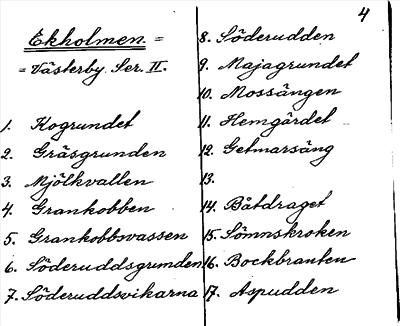 4
Ekholmen =
= Västerby Ser. II.
1. Kogrundet
2. Gräsgrunden
3. Mjölkvallen
4. Grankobben
5. Grankobbsvassen
6. Söderuddsgrunden
7. Söderuddsvikarna
8. Söderudden
9. Majagrundet
10. Mossängen
11. Hemgärdet
12. Getmarsäng
13.
14. Båtdraget
15. Sömnskroken
16. Bockbranten
17. Aspudden